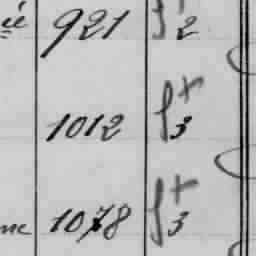 ié 921 f+ 2
1012 f+ 3
ne 1078 f+ 3